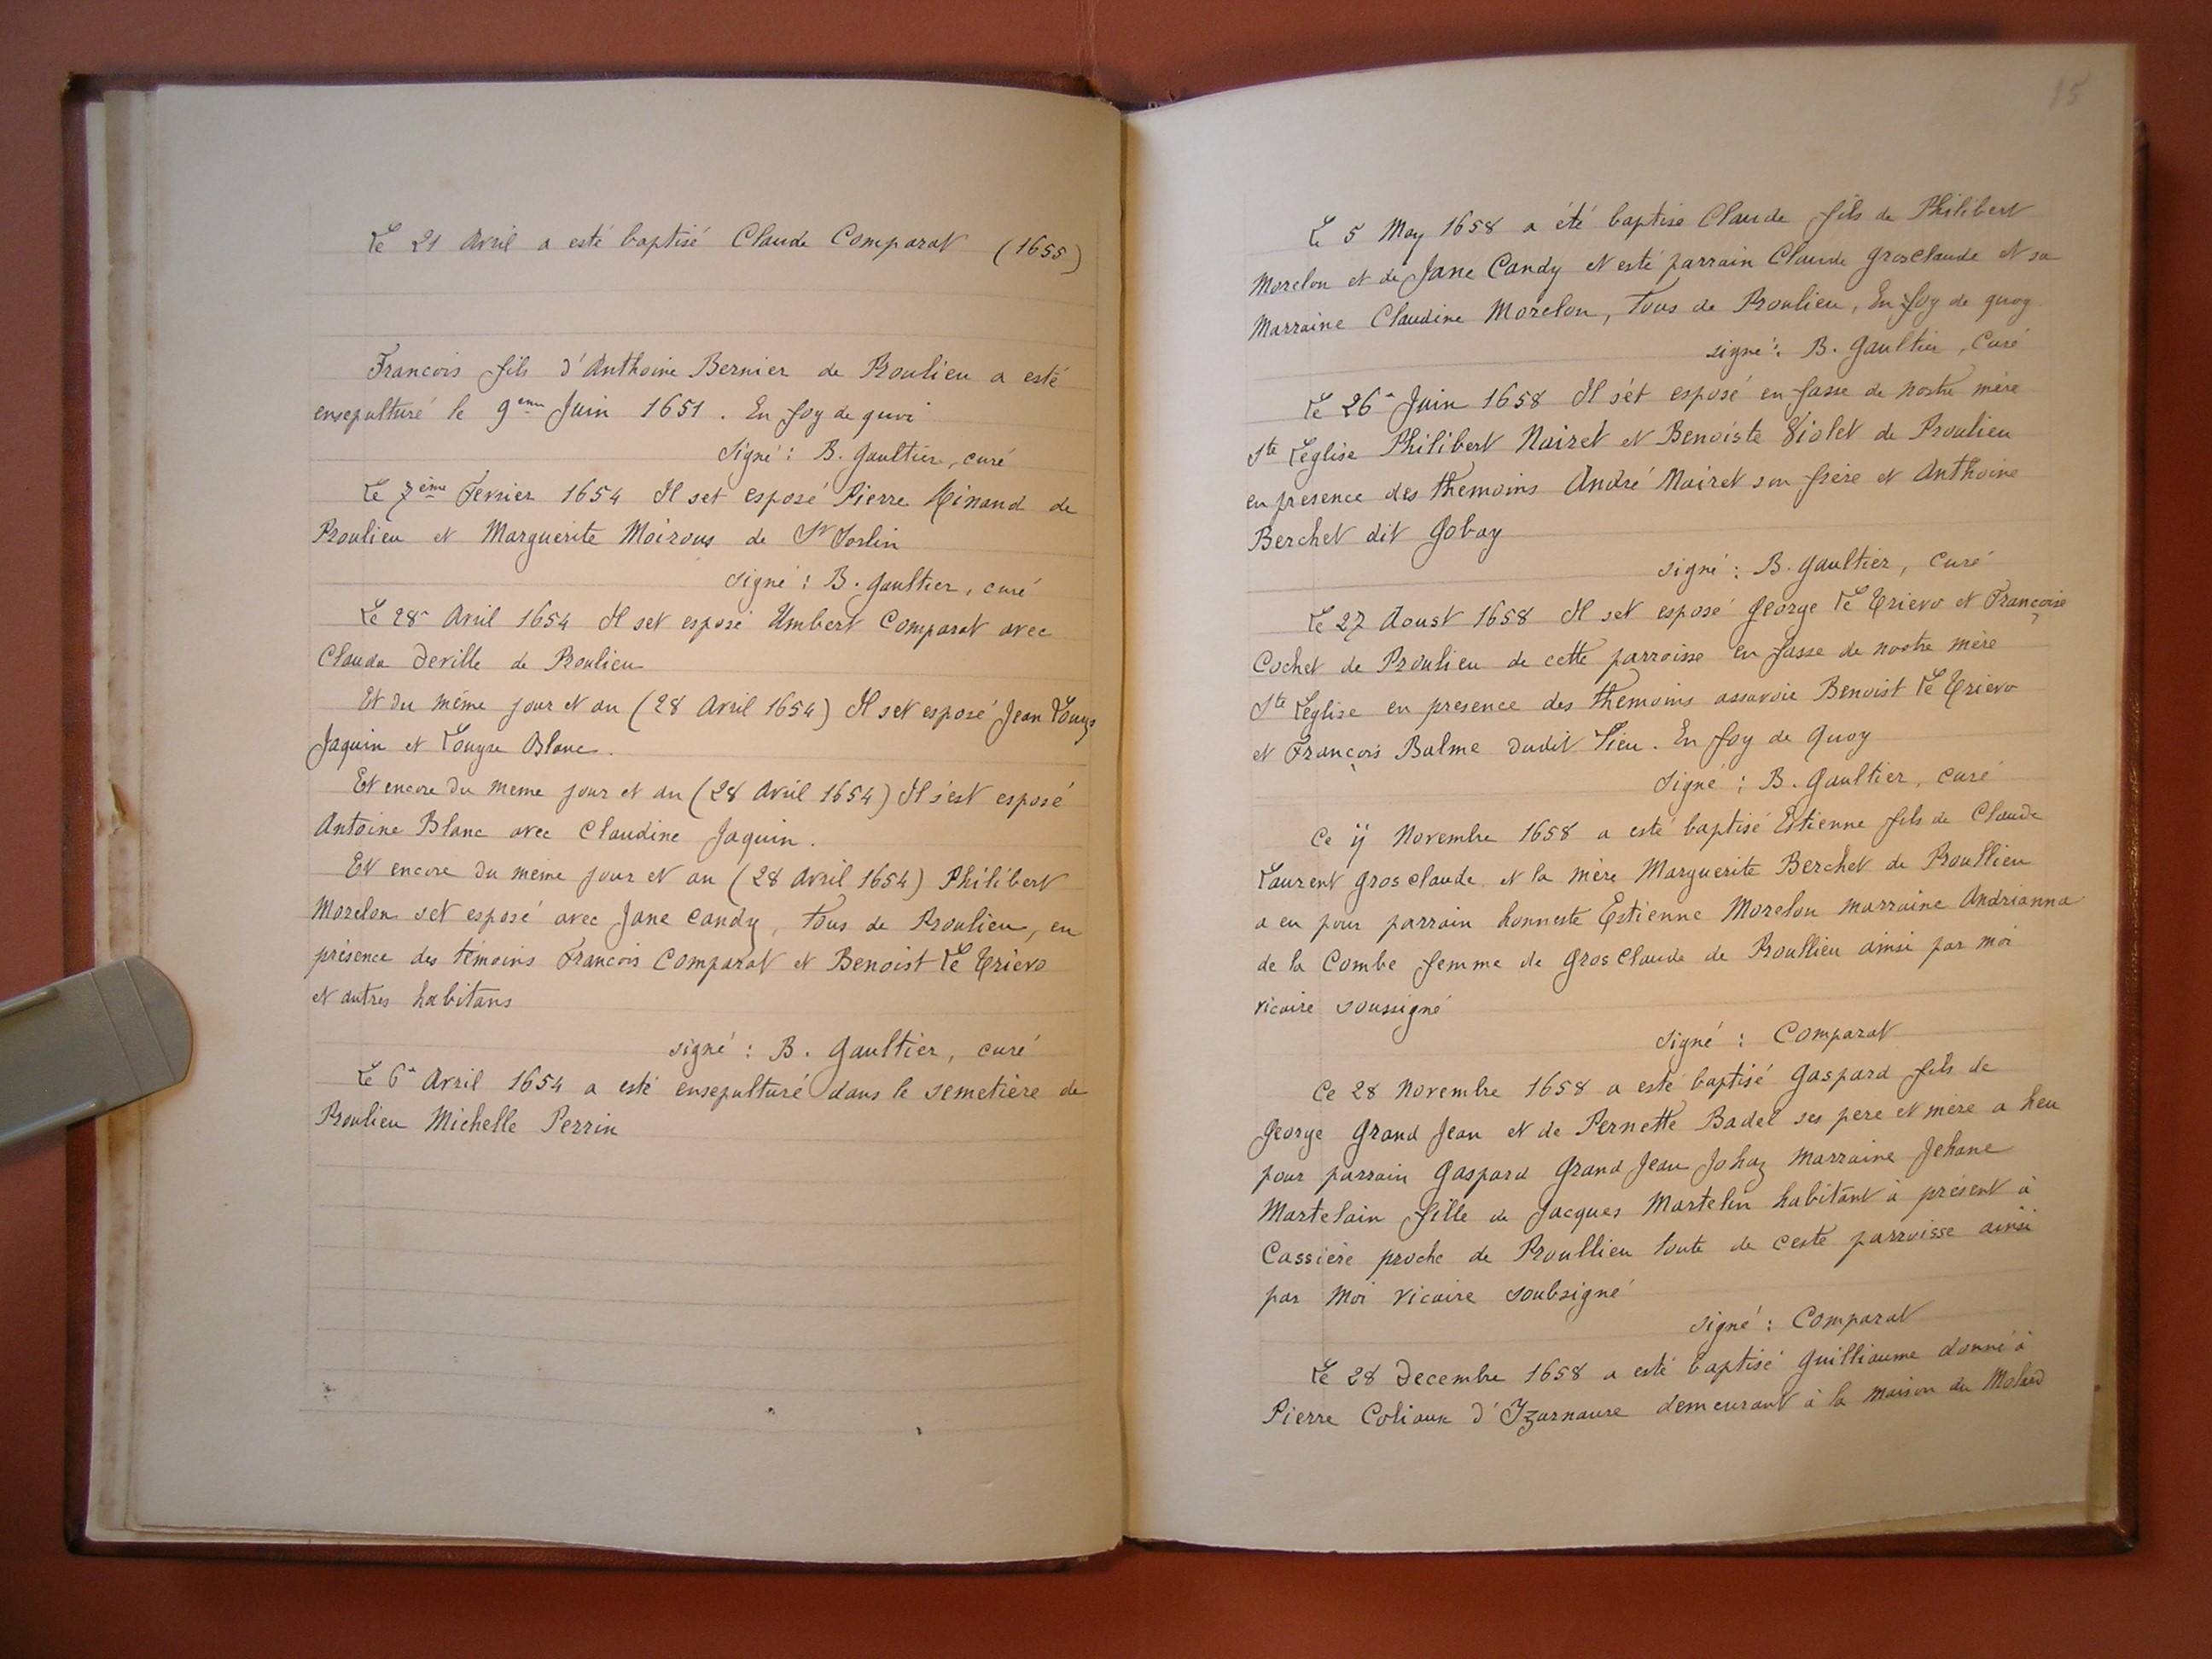 Le 21 Avril a esté baptisé Claude Comparat (1655)
Francois fils d'Anthoine Bernier de Proulieu a esté
ensepulturé le 9eme Juin 1651. En foy de quoi
Signé : B. Gaultier, curé
Le 7ème Fevrier 1654 Il set esposé Pierre Minand de
Proulieu et Marguerite Moirous de St Sorlin
signé : B. Gaultier, curé
Le 28e Avril 1654 Il set esposé Umbert Comparat avec
Clauda Deville de Proulieu
Et du même jour et an (28 Avril 1654) Il set esposé Jean Louys
Jaquin et Louyse Blanc.
Et encore du meme jour et an (28 Avril 1654) Il s'est esposé
Antoine Blanc avec Claudine Jaquin.
Et encore du meme jour et an (28 Avril 1654) Philibert
Morelon set esposé avec Jane Candy, tous de Proulieu, en
présence des témoins Francois Comparat et Benoist Le Trievo
et autres habitans
signé : B. Gaultier, curé
Le 6e Avril 1654 a esté ensepulturé dans le semetière de
Proulieu Michelle Perrin
15
Le 5 May 1658 a été baptisé Claude fils de Philibert
Morelon et de Jane Candy et esté parrain Claude Grosclaude et sa
Marraine Claudine Morelon, tous de Proulieu, En foy de quoy
signé : B. Gaultier, Curé
Le 26e Juin 1658 Il s'ét esposé en fasse de nostre mère
Ste Leglise Philibert Nairet et Benoiste Violet de Proulieu
en presence des themoins André Nairet son frère et Anthoine
Berchet dit Gobay
signé : B. Gaultier, Curé
Le 27 Aoust 1658 Il set esposé George Le Trievo et Françoise
Cochet de Proulieu de cette parroisse en fasse de nostre mère
Ste Leglise en presence des themoins assavoir Benoist Le Trievo
et François Balme dudit lieu. En foy de Quoy
Signé : B. Gaultier, curé
Ce ij Novembre 1658 a esté baptisé Estienne fils de Claude
Laurent Gros claude et la mère Marguerite Berchet de Proullieu
a eu pour parrain honneste Estienne Morelon marraine Andrianna
de la Combe femme de Gros Claude de Proullieu ainsi par moi
vicaire soussigné
signé : Comparat
Ce 28 Novembre 1658 a esté baptisé Gaspard fils de
George Grand Jean et de Pernette Badel ses pere et mère a heu
pour parrain Gaspard Grand Jean Johaz Marraine Jehane
Martelain fille de Jacques Martelin habitant à présent à
Cassière proche de Proullieu toute de ceste parroisse ainsi
par Moi vicaire soubsigné
signé : Comparat
Le 28 Decembre 1658 a esté baptisé Guilliaume donné à
Pierre Coliaux d'Izarnaure demeurant à la maison du Molard